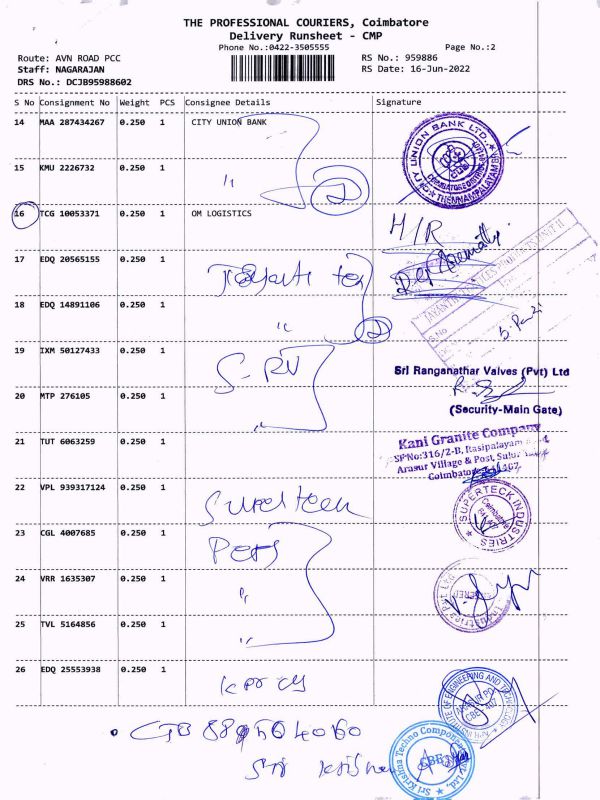 THE PROFESSIONAL COURIERS, Coimbatore
Delivery Runsheet - CMP
Phone No.:0422-3505555 Page No.:2
Route: AVN ROAD PCC RS No.: 959886
Staff: NAGARAJAN RS Date: 16-Jun-2022
DRS No.: DCJB95988602
S No Consignment No Weight PCS Consignee Details Signature
14 MAA 287434267 0.250 1 CITY UNION BANK
CITY UNION BANK LTD. THENNAMPALAYAM
15 KMU 2226732 0.250 1 " 2
16 TCG 10053371 0.250 1 OM LOGISTICS H/R
17 EDQ 20565155 0.250 1
18 EDQ 14891106 0.250 1 " 2
S.No
19 IXM 50127433 0.250 1 S-RV
Sri Ranganathar Valves (Pvt) Ltd
20 MTP 276105 0.250 1 "
(Security-Main Gate)
21 TUT 6063259 0.250 1
Kani Granite Company
SFNo:316/2-B, Rasipalayam
Arasur Village & Post, Sulur
Coimbatore
22 VPL 939317124 0.250 1 Supertech
SUPERTECK INDUSTRIES
Coimbatore
23 CGL 4007685 0.250 1
24 VRR 1635307 0.250 1 "
25 TVL 5164856 0.250 1 "
26 EDQ 25553938 0.250 1
INSTITUTE OF ENGINEERING AND TECHNOLOGY
Sri Krishna
Sri Krishna Techno Components Pvt. Ltd.
CBE